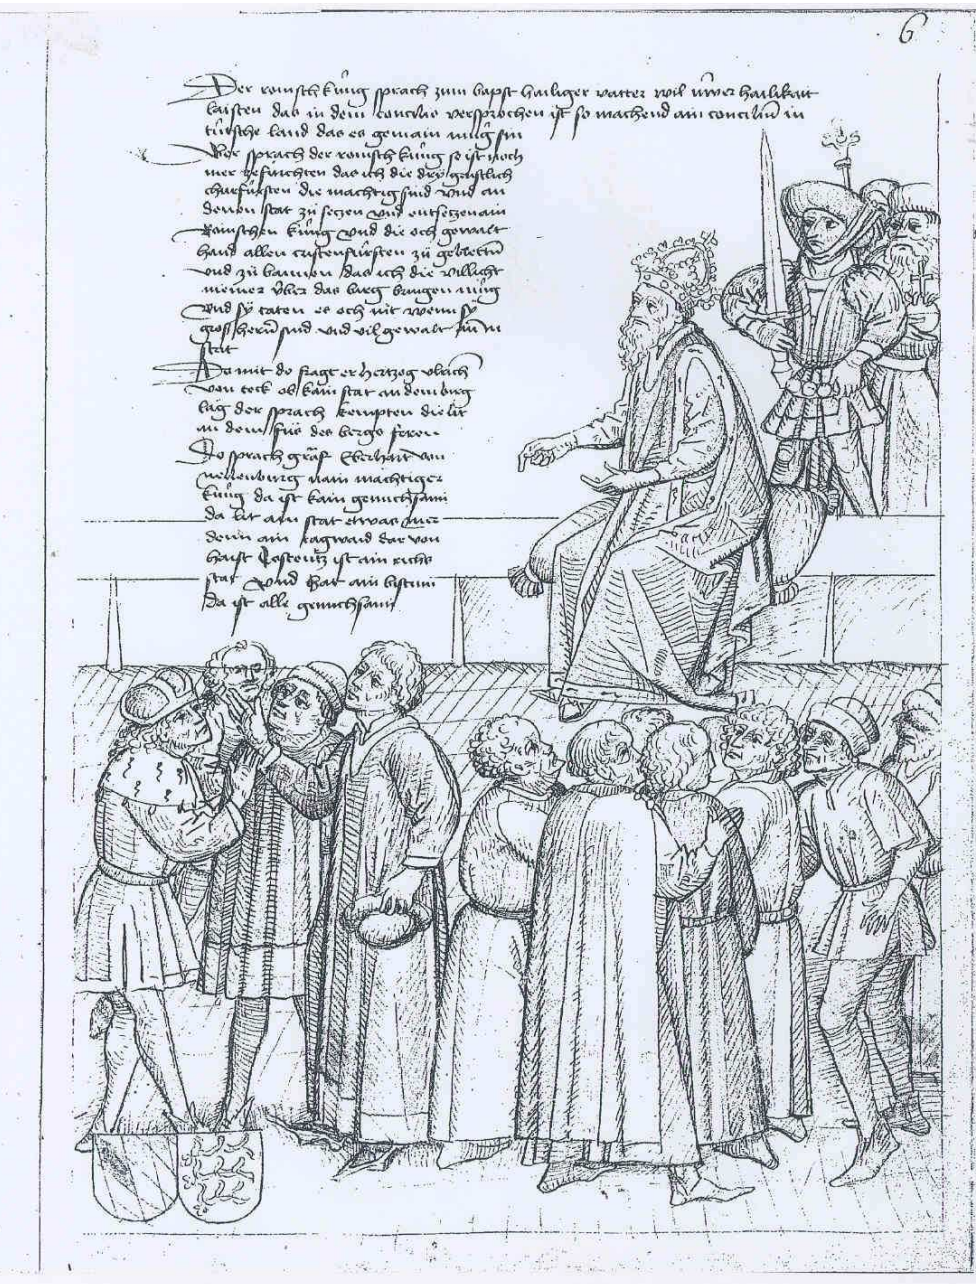 6
Der romisch kúng sprach zum bapst hailiger vatter wil úwer hailikait
laisten das in dem concilio versprochen ist so machend ain conciliū in
tútsche land das es gemain múg sin
sprach der romisch kúng so ist noch
mer das ich die dry gaistlich
churfúrsten die machtig sind vnd an
denen stat zú setzen vnd entsetzen ain
Romischen kúng vnd die och gewalt
hand allen cristenfúrsten zú gebietten
vnd zú bannen das ich die villicht
meiner úber das birg bringen múg
vnd sy taten es och nit wenn sy
gross herrn sind vnd vil gewalt an in
stat
Da mit do fragt er hertzog vlrich
von teck ob kain stat an dem birg
lág der sprach kempten die lit
an dem fús des bergs feren
Do sprach gräf Eberhart von
nellenburg nain machtiger
kúng da ist kain genuchsami
da lit ain stat etwas mer
denn ain tagwaid dar von
haist Costentz ist ain richs
stat vnd hat ain bistum
da ist alle genuchsami